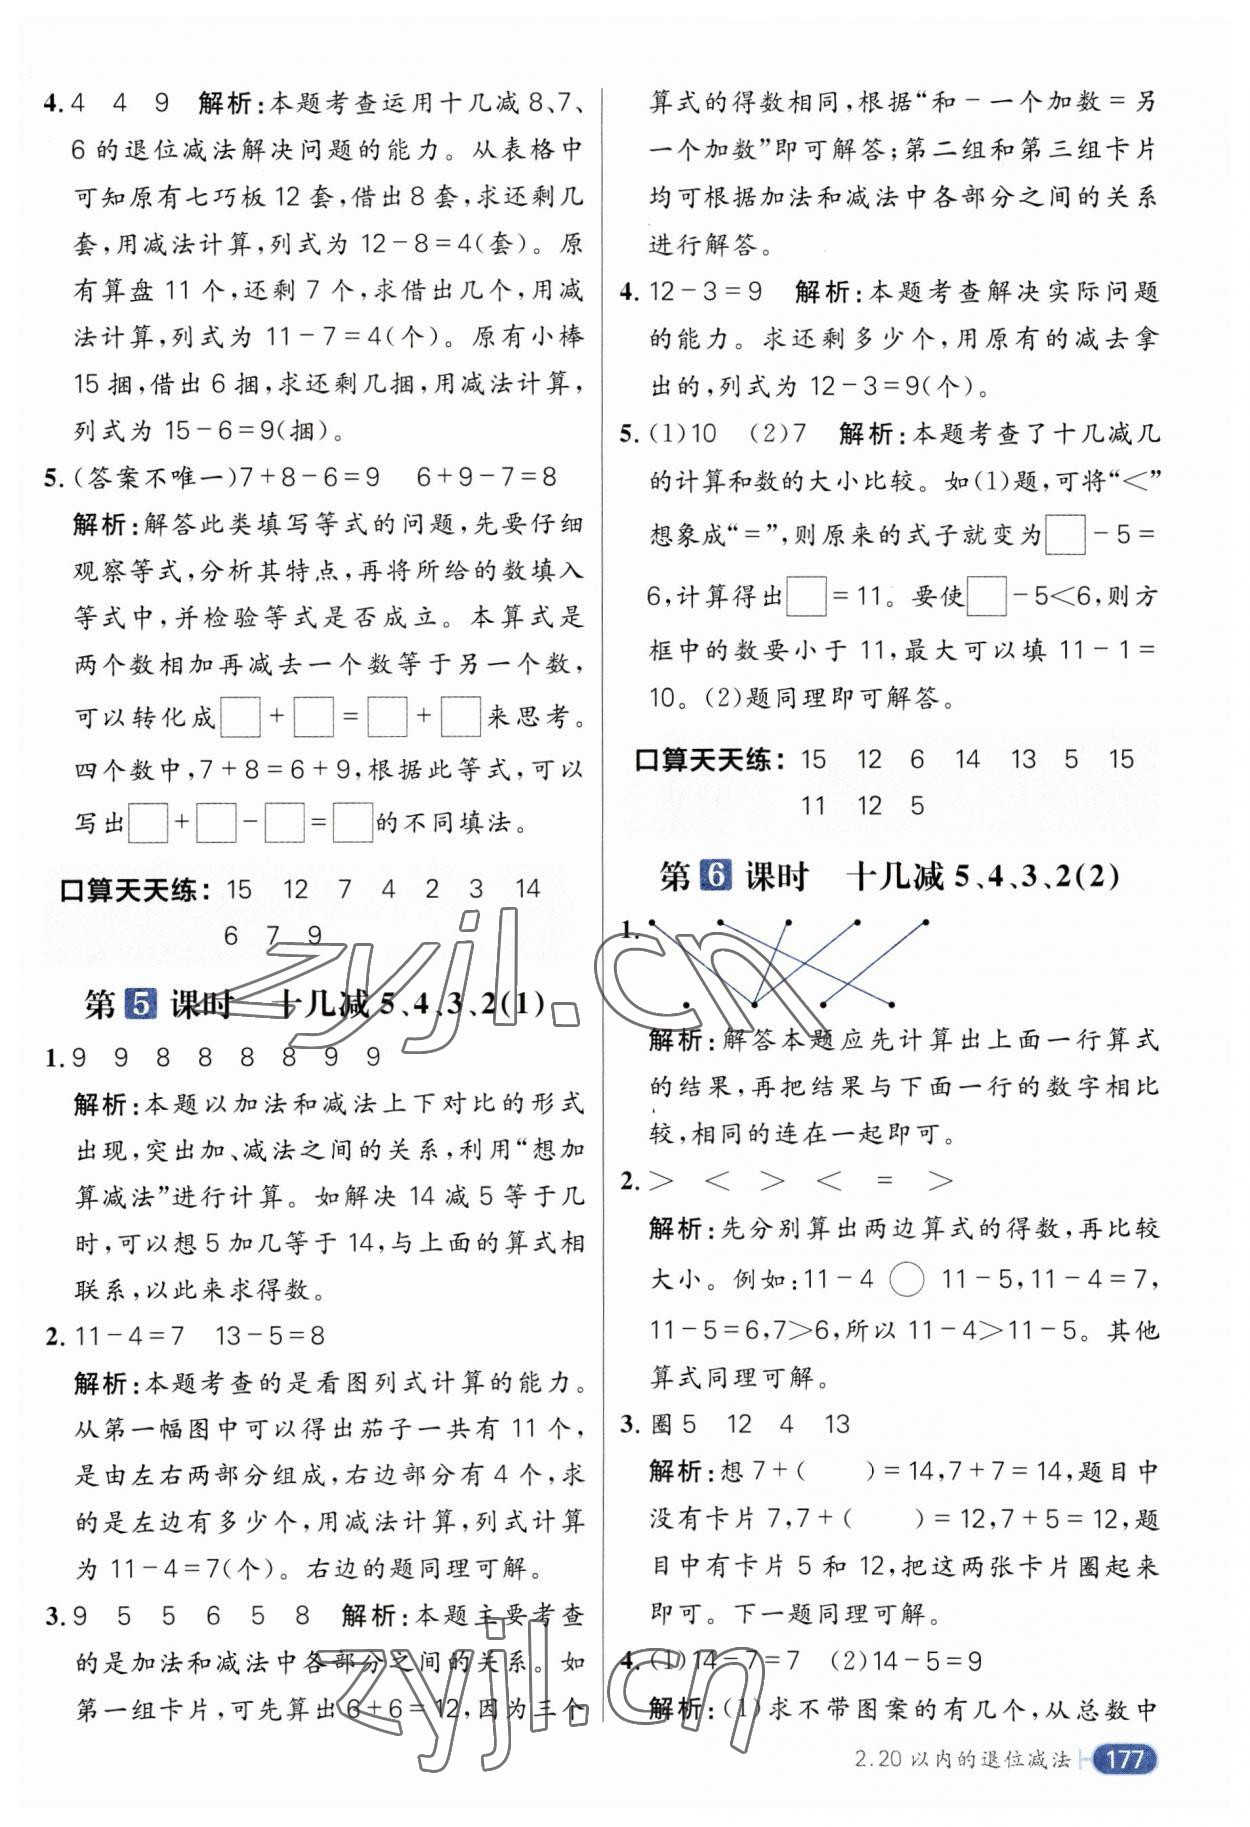 4. 4 4 9 解析:本题考查运用十几减8、7、
6的退位减法解决问题的能力。从表格中
可知原有七巧板12套,借出8套,求还剩几
套,用减法计算,列式为12-8=4(套)。原
有算盘11个,还剩7个,求借出几个,用减
法计算,列式为11-7=4(个)。原有小棒
15捆,借出6捆,求还剩几捆,用减法计算,
列式为15-6=9(捆)。
5. (答案不唯一)7+8-6=9 6+9-7=8
解析:解答此类填写等式的问题,先要仔细
观察等式,分析其特点,再将所给的数填入
等式中,并检验等式是否成立。本算式是
两个数相加再减去一个数等于另一个数,
可以转化成□+□=□+□来思考。
四个数中,7+8=6+9,根据此等式,可以
写出□+□-□=□的不同填法。
口算天天练: 15 12 7 4 2 3 14
6 7 9
第5课时 十几减5、4、3、2(1)
1. 9 9 8 8 8 8 9 9
解析:本题以加法和减法上下对比的形式
出现,突出加、减法之间的关系,利用“想加
算减法”进行计算。如解决14减5等于几
时,可以想5加几等于14,与上面的算式相
联系,以此来求得数。
2. 11-4=7 13-5=8
解析:本题考查的是看图列式计算的能力。
从第一幅图中可以得出茄子一共有11个,
是由左右两部分组成,右边部分有4个,求
的是左边有多少个,用减法计算,列式计算
为11-4=7(个)。右边的题同理可解。
3. 9 5 5 6 5 8 解析:本题主要考查
的是加法和减法中各部分之间的关系。如
第一组卡片,可先算出6+6=12,因为三个
算式的得数相同,根据“和-一个加数=另
一个加数”即可解答;第二组和第三组卡片
均可根据加法和减法中各部分之间的关系
进行解答。
4. 12-3=9 解析:本题考查解决实际问题
的能力。求还剩多少个,用原有的减去拿
出的,列式为12-3=9(个)。
5. (1)10 (2)7 解析:本题考查了十几减几
的计算和数的大小比较。如(1)题,可将“<”
想象成“=”,则原来的式子就变为□-5=
6,计算得出□=11。要使□-5<6,则方
框中的数要小于11,最大可以填11-1=
10。(2)题同理即可解答。
口算天天练: 15 12 6 14 13 5 15
11 12 5
第6课时 十几减5、4、3、2(2)
1.
解析:解答本题应先计算出上面一行算式
的结果,再把结果与下面一行的数字相比
较,相同的连在一起即可。
2. > < > < = >
解析:先分别算出两边算式的得数,再比较
大小。例如:11-4 ○ 11-5,11-4=7,
11-5=6,7>6,所以11-4>11-5。其他
算式同理可解。
3. 圈5 12 4 13
解析:想7+( )=14,7+7=14,题目中
没有卡片7,7+( )=12,7+5=12,题
目中有卡片5和12,把这两张卡片圈起来
即可。下一题同理可解。
4. (1)14-7=7 (2)14-5=9
解析:(1)求不带图案的有几个,从总数中
2.20以内的退位减法 177
zyjl.cn
zyjl.cn